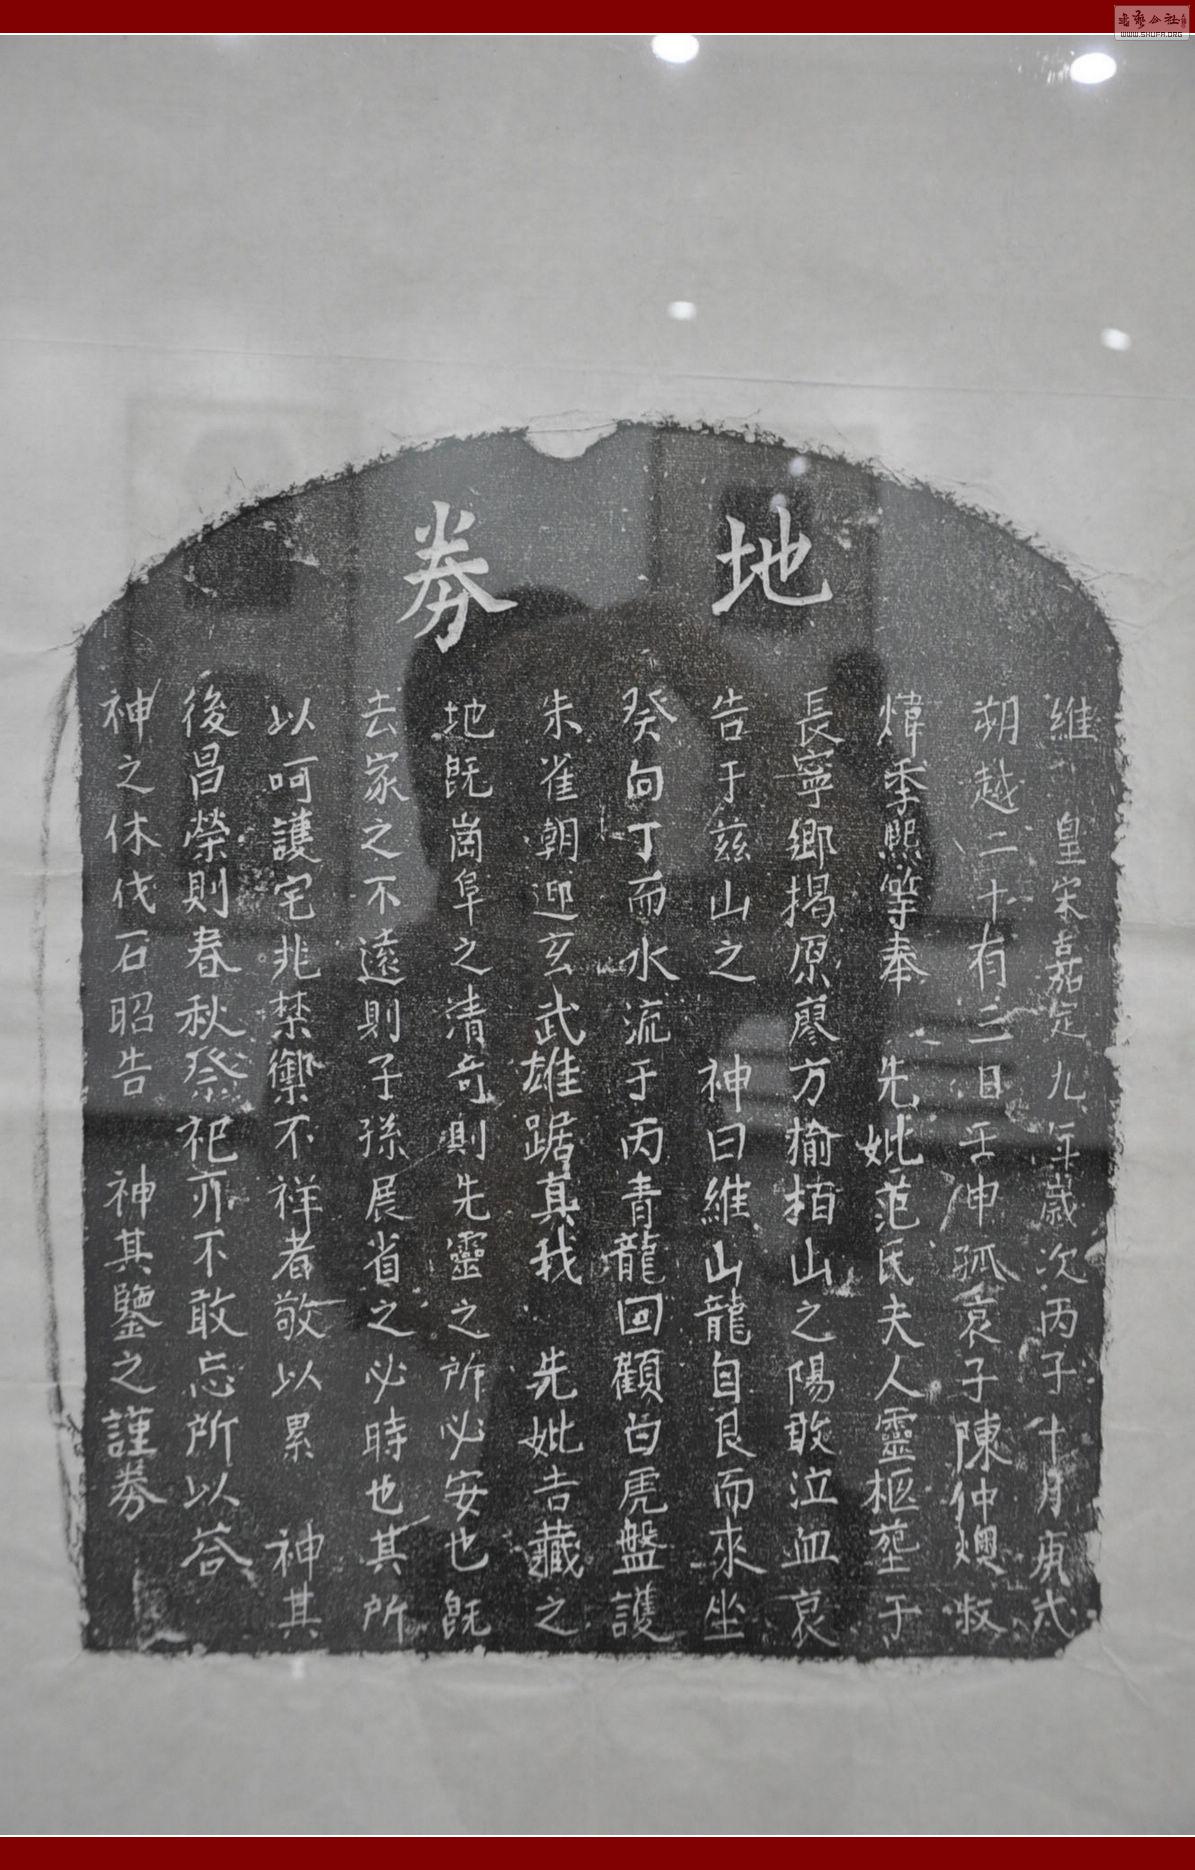 地券
維 皇宋嘉定九年歲次丙子十月庚戌
朔越二十有三日壬申孤哀子陳仲
煒季熙等奉 先妣范氏夫人靈柩塟于
長寧鄉揭原廖方榆栢山之陽敢泣血哀
告于茲山之 神曰維山龍自艮而來坐
癸向丁而水流于丙青龍回顧白虎盤護
朱雀朝迎玄武雄踞真我 先妣吉藏之
地既崗阜之清奇則先靈之所必安也既
去家之不遠則子孫展省之必時也其所
以呵護宅兆禁禦不祥者敬以累 神其
後昌榮則春秋祭祀亦不敢忘所以荅
神之休伐石昭告 神其鑒之謹券
書藝公社
WWW.SHUFA.ORG